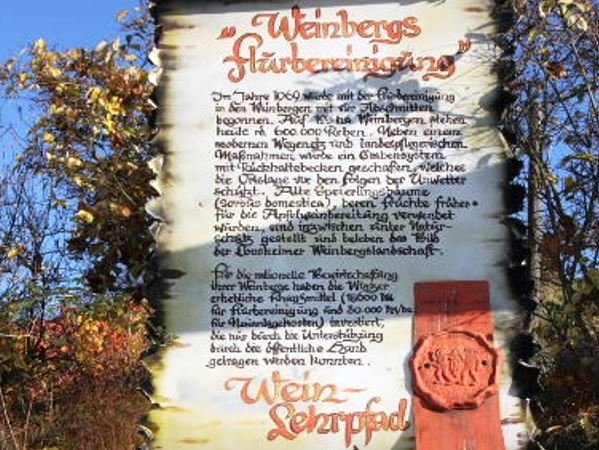 "Weinbergs
flurbereinigung"
Im Jahre 1969 wurde mit der Flurbereinigung
in den Weinbergen mit vier Abschnitten
begonnen. Auf ha Weinbergen stehen
heute rd. 600.000 Reben. Neben einem
modernen Wegenetz und landespflegerischen
Maßnahmen, wurde ein Grabensystem
mit Rückhaltebecken geschaffen, welches
die Ortslage vor den Folgen der Unwetter
schützt. Alte Speierlingsbäume
(Sorbus domestica), deren früchte früher
für die Apfelweinbereitung verwendet
wurden, sind inzwischen unter Natur-
schutz gestellt und beleben das Bild
der Weinbergslandschaft.
Für die rationelle Bewirtschaftung
ihrer Weinberge haben die Winzer
erhebliche
für Flurbereinigung und 50 000 DM/ha
für investiert,
die nur durch die Unterstützung
durch die öffentliche Hand
getragen werden konnten.
Wein-
Lehrpfad